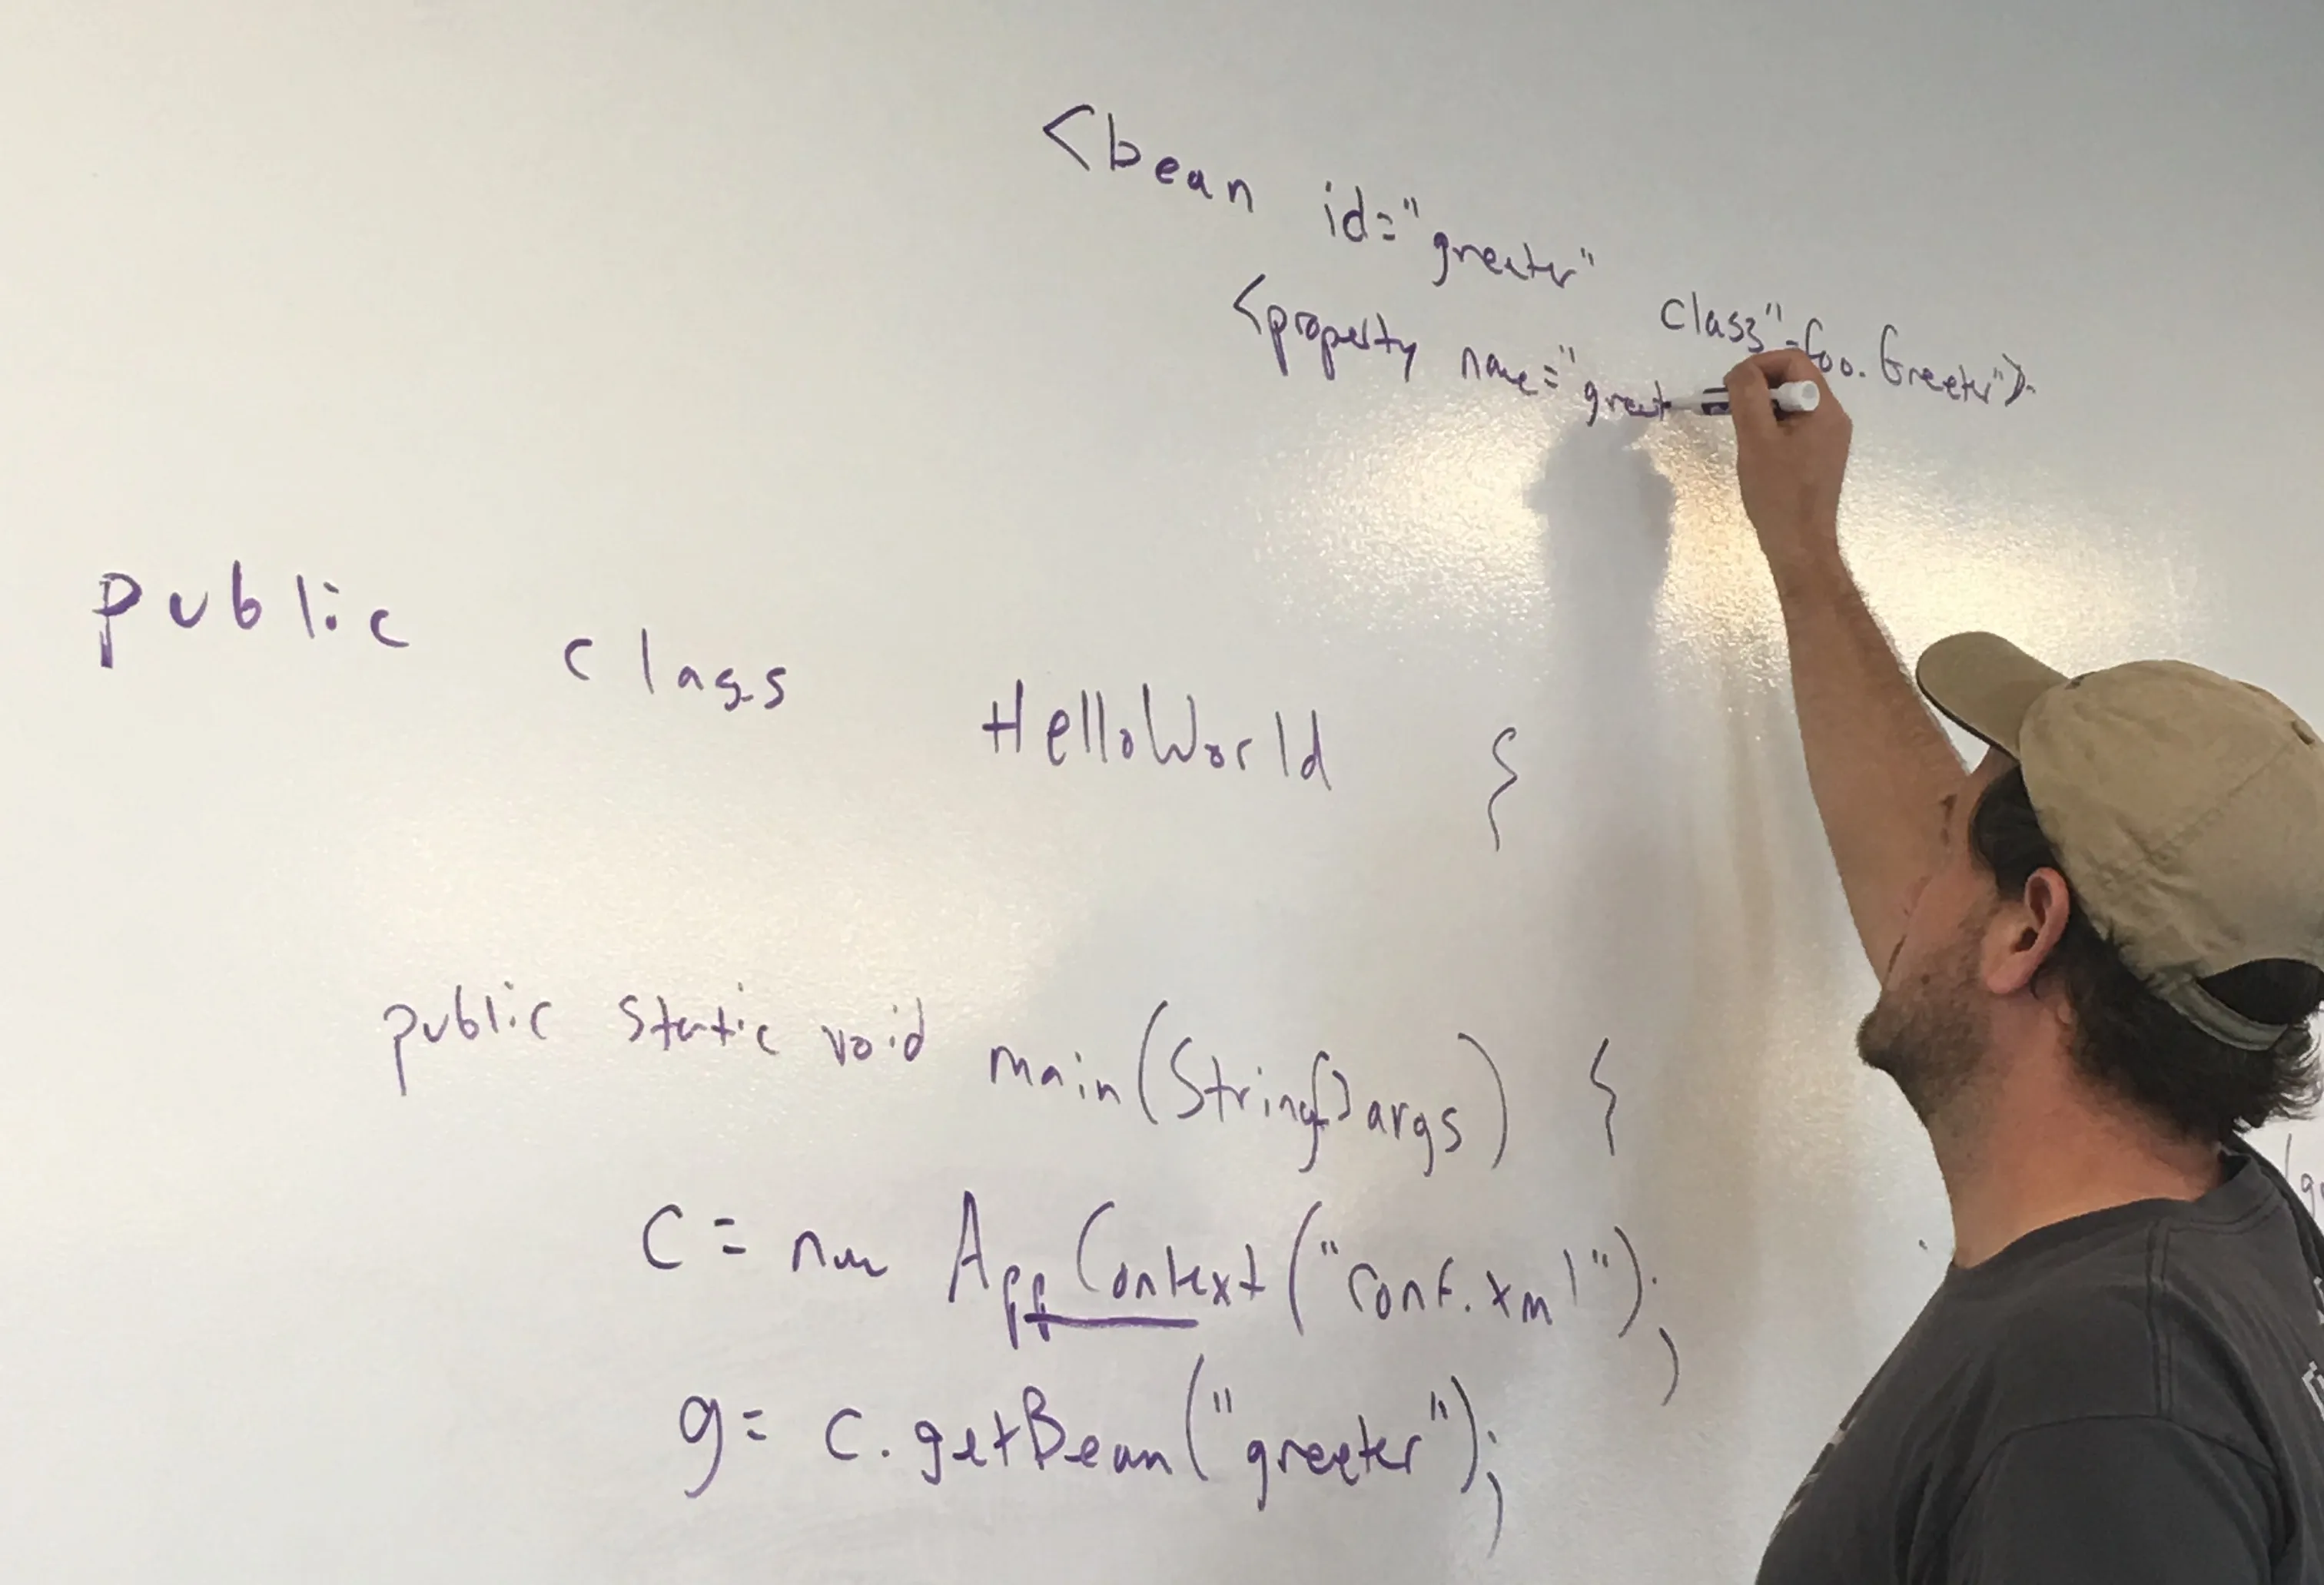 <bean id="greeter" class"=foo.Greeter">
<property name="greet
public class HelloWorld {
public static void main(String[] args) {
c = new AppContext("conf.xml");
g = c.getBean("greeter");